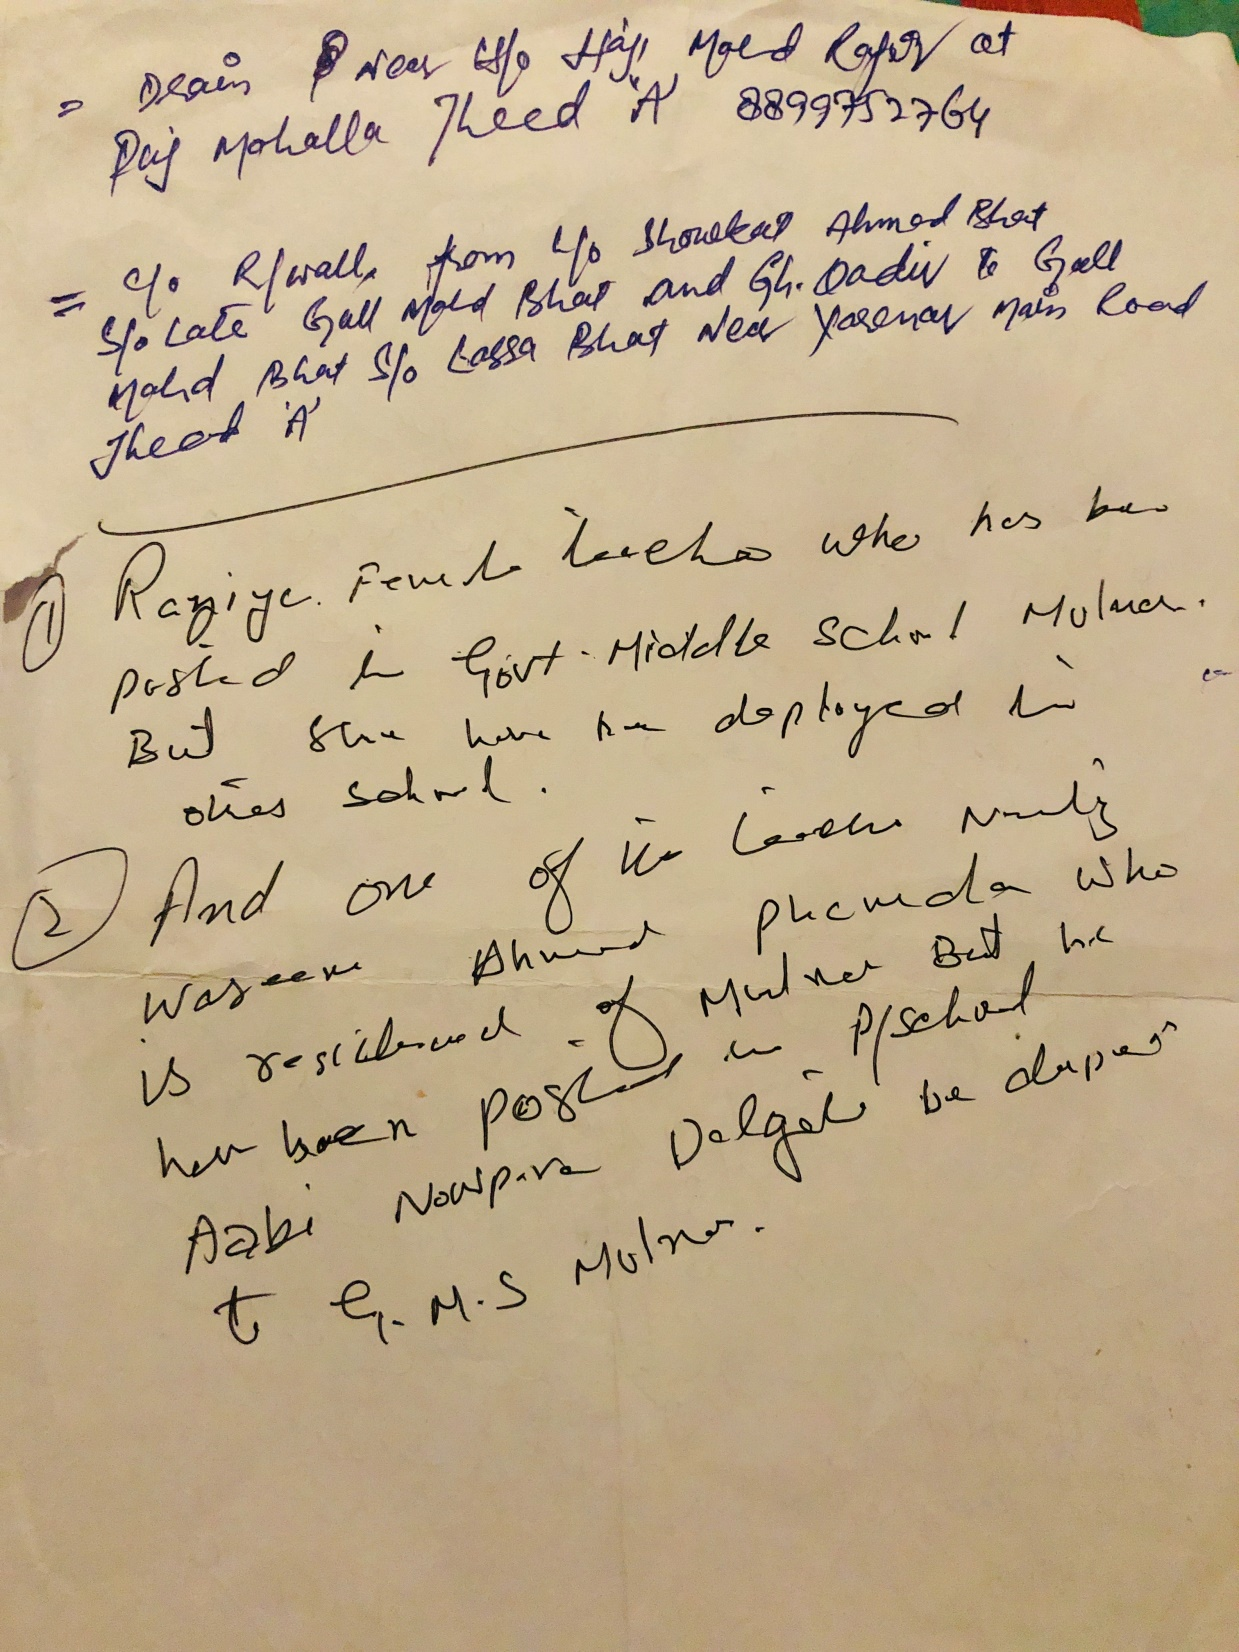 = Drain Near H/o Haji Mohd Rafiq at
Raj Mohalla Theed 'A' 8899752764
= C/o R/wall from L/o Showkat Ahmad Bhat
S/o Late Gull Mohd Bhat and Gh. Qadir to Gull
Mohd Bhat S/o Lassa Bhat Near Main Road
Theed 'A'
① Raziya. Female teacher who has been
posted in Govt. Middle School Mulnar.
But She have been deployed in
other school.
② And one of the teacher Namely
Waseem Ahmad who
is residend of Mulnar But he
have been posted in P/school
Aabi Nowpora Dalgate be
to G.M.S Mulnar.